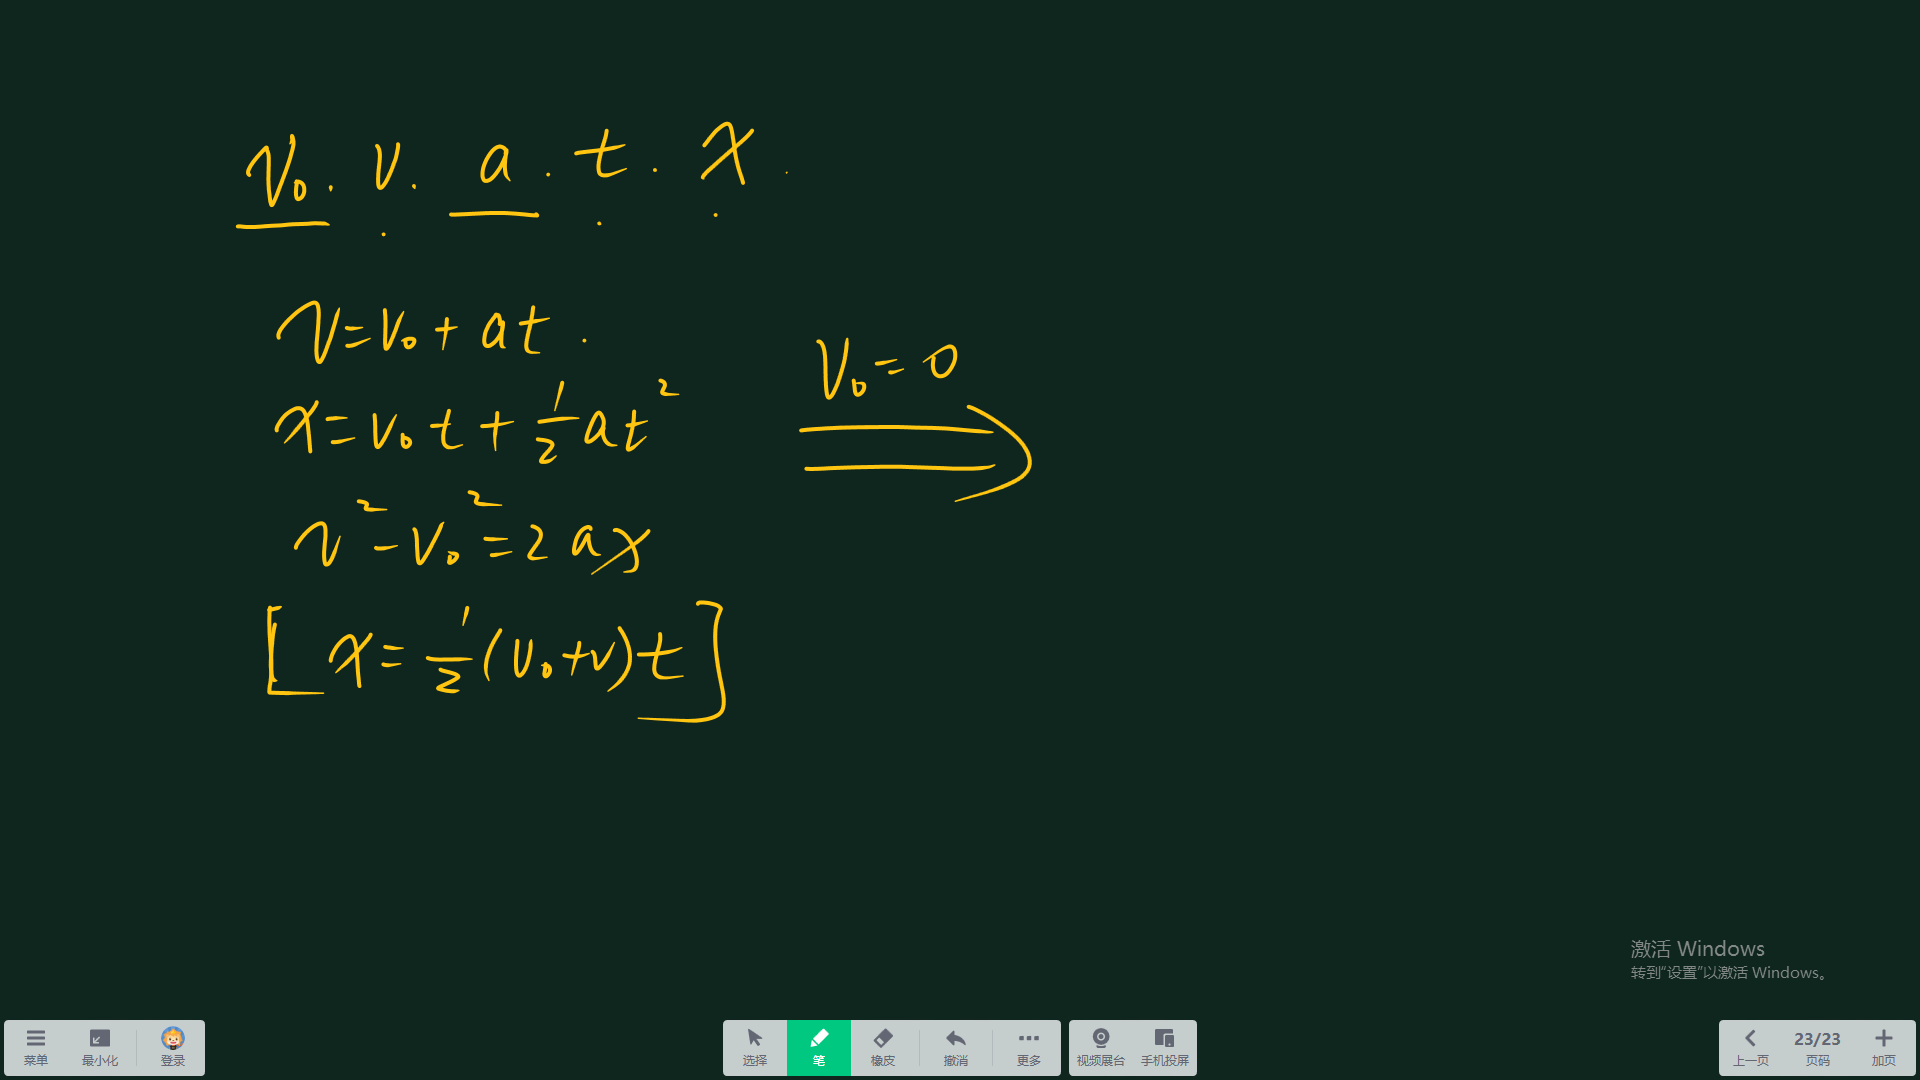 v₀. v. a. t. x.
v=v₀+at.
x=v₀t+½at²
v²-v₀²=2ax
[x=½(v₀+v)t]
v₀=0
激活 Windows
转到“设置”以激活 Windows。
菜单 最小化 登录 选择 笔 橡皮 撤消 更多 视频展台 手机投屏 上一页 23/23 页码 加页